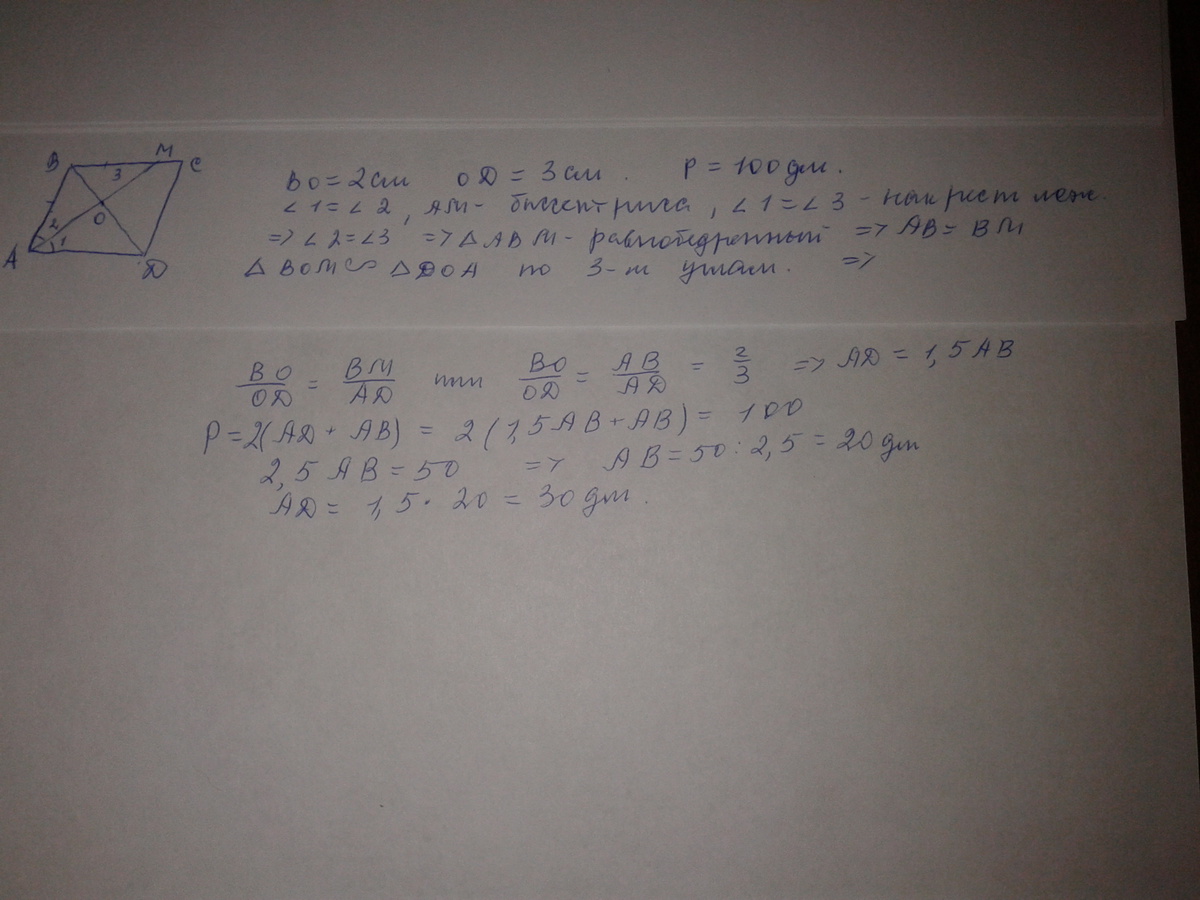 B M C
3
2 O
1
A D
BO = 2 см OD = 3 см. P = 100 дм.
∠1 = ∠2, AM - биссектриса, ∠1 = ∠3 - накрест леж.
=> ∠2 = ∠3 => △ABM - равнобедренный => AB = BM
△BOM ∽ △DOA по 3-м углам. =>
BO/OD = BM/AD или BO/OD = AB/AD = 2/3 => AD = 1,5 AB
P = 2(AD + AB) = 2(1,5AB + AB) = 100
2,5 AB = 50 => AB = 50 : 2,5 = 20 дм
AD = 1,5 · 20 = 30 дм.